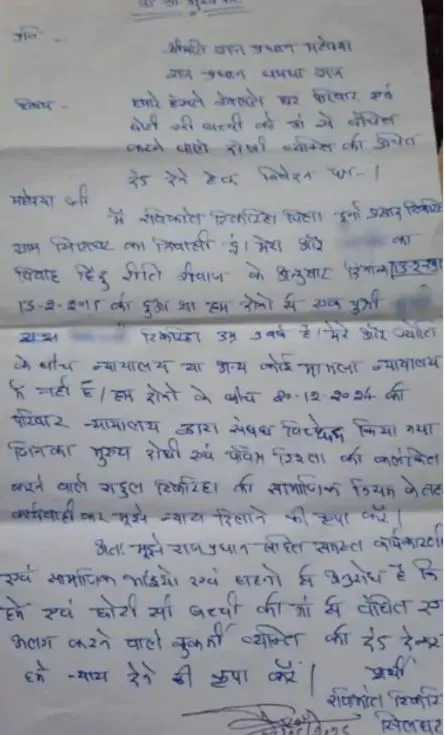 प्रति -
श्रीमति राज प्रधान महोदया
राज प्रधान धमधा राज
विषय - हमारे हंसते खेलते घर परिवार एवं
छोटी सी बच्ची को माँ से वंचित
करने वाले दोषी व्यक्ति को उचित
दंड देने हेतु निवेदन पत्र -।
महोदया जी
मैं रविकांत रिकरिहा पिता दुर्गा प्रसाद रिकरिहा
ग्राम सिलघट का निवासी हूं। मेरा और का
विवाह हिन्दू रीति रिवाज के अनुसार दिनांक
13-2-2015 को हुआ था हम दोनों से एक पुत्री
रिकरिहा उम्र वर्ष है। मेरे और
के बीच न्यायालय या अन्य कोई मामला न्यायालय
में नहीं है। हम दोनों के बीच 20-12-2024 को
परिवार न्यायालय द्वारा संबंध विच्छेद किया गया
जिनका मुख्य दोषी एवं पवित्र रिश्ता को कलंकित
करने वाले राहुल रिकरिहा को सामाजिक नियम के तहत
कार्यवाही कर मुझे न्याय दिलाने की कृपा करें।
अतः मुझे राज प्रधान सहित समस्त कार्यकारणी
एवं सामाजिक भाईयों एवं बहनों से अनुरोध है कि
हमें एवं छोटी सी बच्ची को माँ से वंचित एवं
अलग करने वाले कुकर्मी व्यक्ति को दंड देकर
हमें न्याय देने की कृपा करें। प्रार्थी
रविकांत रिकरि
सिलघट